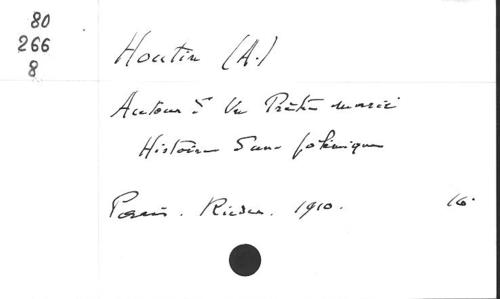 80
266
8
Houtin (A.)
Autour d' Un Prêtre marié
Histoire d'une polémique
Paris. Rieder. 1910. 16.